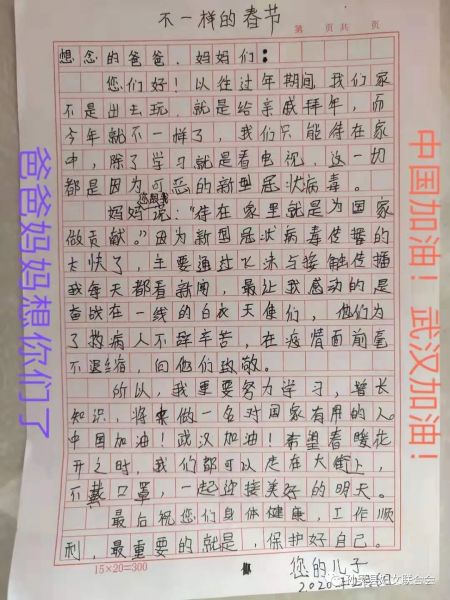 不一样的春节
第 页共 页
想念的爸爸、妈妈们:
您们好！以往过年期间，我们家
不是出去玩，就是给亲戚拜年，而
今年就不一样了，我们只能待在家
中，除了学习就是看电视，这一切
都是因为可恶的新型冠状病毒。
妈妈说："待在家里就是为国家
做贡献。"因为新型冠状病毒传播的
太快了，主要通过飞沫与接触传播
我每天都看新闻，最让我感动的是
奋战在一线的白衣天使们，他们为
了救病人不辞辛苦，在疫情面前毫
不退缩，向他们致敬。
所以，我更要努力学习，增长
知识，将来做一名对国家有用的人。
中国加油！武汉加油！希望春暖花
开之时，我们都可以走在大街上，
不戴口罩，一起迎接美好的明天。
最后祝您们身体健康，工作顺
利，最重要的就是，保护好自己。
15×20=300
您的儿子
2020年
爸爸妈妈想你们了
中国加油！武汉加油！